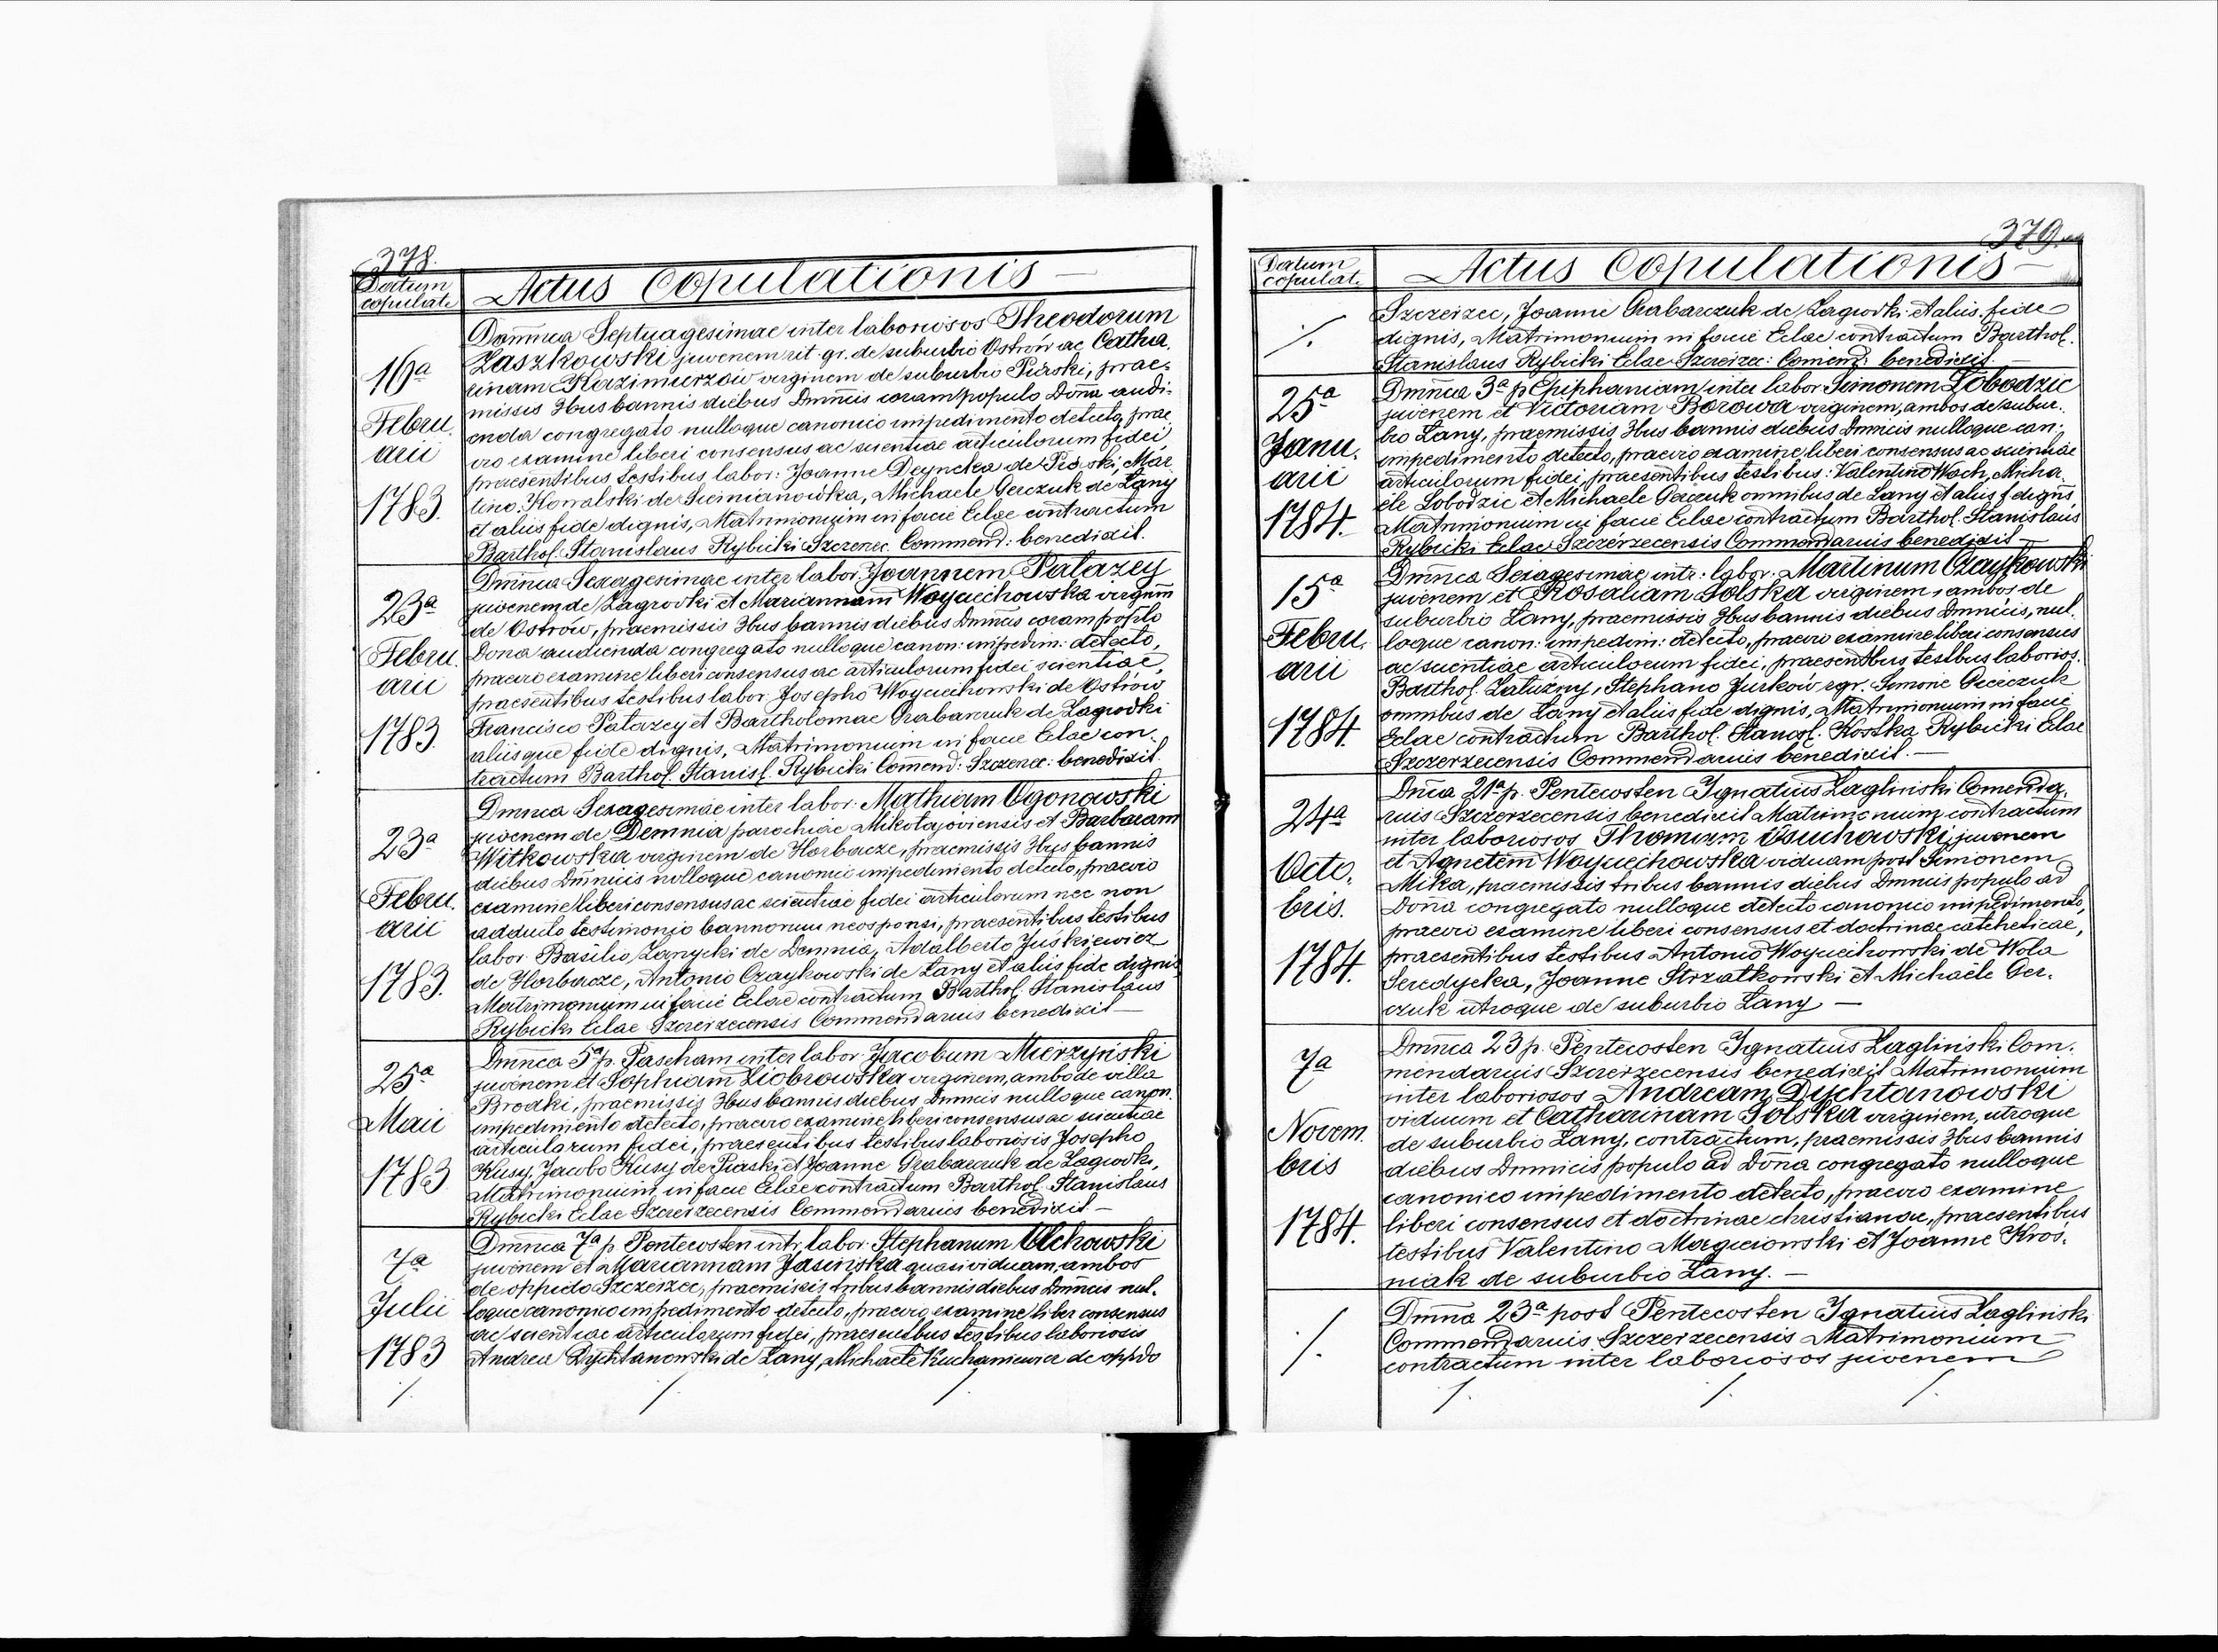 378.
Datum
copulat.
Actus Copulationis —
16a
Febru.
arii
1783.
Damnica Septuagesimae inter laboriosos Theodorum
Zaszkowski juvenem rit. gr. de suburbio Ostrów ac Catha.
rinam Kazimurzów virginem de suburbio Piaski, prae=
missis 3bus bannis diebus Dmnicis coram populo Dona audi=
enda congregato nulloque canonico impedimento detecto, prae
vio examine liberi consensus ac scientiae articulorum fidei,
praesentibus testibus labor: Joanne Deyneka de Piaski, Mar
tino Kowalski de Siemianowka, Michaele Gerczuk de Łany
et aliis fide dignis, Matrimonium in facie Eclae contractum
Barthol: Stanislaus Rybicki Szczerzec. Commend: benedixit.
23a
Febru.
arii
1783.
Dmnica Sexagesimae inter labor. Joannem Patazey
juvenem de Zagrodki et Mariannam Woyciechowska virginem
de Ostrów, praemissis 3bus bannis diebus Dmnicis coram poplo
Dona audienda congregato nulloque canon: impedim: detecto,
praevio examine liberi consensus ac articulorum fidei scientiae,
praesentibus testibus labor. Josepho Woyciechowski de Ostrów
Francisco Patazey et Bartholomae Grabarczuk de Zagrodki
aliisque fide dignis, Matrimonium in facie Eclae con.
tractum Barthol. Stanisl. Rybicki Comend: Szczerzec: benedixit.
23a
Febru.
arii
1783.
Dmnica Sexagesimae inter labor. Mathiam Ogonowski
juvenem de Demnia parochiae Mikołajoviensis et Barbaram
Witkowska virginem de Horbacze, praemissis 3bus bannis
diebus Dmnicis nulloque canonico impedimento detecto, praevio
examine liberi consensus ac scientiae fidei articulorum nec non
adducto testimonio bannorum neosponsi, praesentibus testibus
labor. Basilio Zanycki de Demnia, Adalberto Juśkiewicz
de Horbacze, Antonio Czaykowski de Łany et aliis fide dignis
Matrimonium in facie Eclae contractum Barthol. Stanislaus
Rybicki Eclae Szczerzecensis Commendarius benedixit —
25a
Maii
1783
Dmnica 5a p. Pascham inter labor. Jacobum Mierzyński
juvenem et Sophiam Ziobrowska virginem, ambo de villa
Brodki, praemissis 3bus bannis diebus Dmnicis nulloque canon.
impedimento detecto, praevio examine liberi consensus ac scientiae
articularum fidei, praesentibus testibus laboriosis Josepho
Kusy, Jacobo Kusy de Piaski et Joanne Grabarczuk de Zagrodki,
Matrimonium in facie Eclae contractum Barthol. Stanislaus
Rybicki Eclae Szczerzecensis Commendarius benedixit —
7a
Julii
1783
Dmnica 7a p. Pentecosten intr. labor. Stephanum Olchowski
juvenem et Mariannam Jasińska quasi viduam, ambos
de oppido Szczeszec, praemissis tribus bannis diebus Dmnicis nul.
loque canonico impedimento detecto, praevio examine liber consensus
ac scientiae articulorum fidei, praesentibus testibus laboriosis
Andrea Dychtanowski de Łany, Michaele Kuchaniewicz de oppido
/. /. /.
379.
Datum
copulat.
Actus Copulationis —
/.
Szczerzec, Joanne Grabarczuk de Zagrodki et aliis fide
dignis, Matrimonium in facie Eclae contractum Barthol.
Stanislaus Rybicki Eclae Szczerzec: Comend: benedixit. —
25a
Janu.
arii
1784.
Dmnica 3a p. Epiphaniam inter labor. Simonem Łobodzic
juvenem et Victoriam Borowa virginem, ambos de subur.
bio Łany, praemissis 3bus bannis diebus Dmnicis nulloque can.
impedimento detecto, praevio examine liberi consensus ac scientiae
articulorum fidei, praesentibus testibus: Valentino Wach, Micha.
ele Lobodzic et Michaele Gerczuk omnibus de Łany et aliis f. dignis
Matrimonium in facie Eclae contractum Barthol. Stanislaus
Rybicki Eclae Szczérzecensis Commendarius benedixit —
15a
Febru.
arii
1784.
Dmnica Sexagesimae intr: labor. Martinum Czaykowski
juvenem et Rosaliam Solska virginem, ambos de
suburbio Łany, praemissis 3bus bannis diebus Dmnicis, nul.
loque canon: impedim: detecto, praevio examine liberi consensus
ac scientiae articulorum fidei, praesentbus testbus laborios.
Barthol. Załuzny, Stephano Jurków rgr. Simone Gerczuk
omnibus de Łany et aliis fide dignis, Matrimonium in facie
Eclae contractum Barthol. Stanisl. Kostka Rybicki Eclae
Szczerzecensis Commendarius benedixit —
24a
Octo.
bris.
1784.
Dnica 21a p. Pentecosten Ignatius Zagliński Comenda.
rius Szczerzecensis benedixit Matrimonium contractum
inter laboriosos Thomam Osuchowski juvenem
et Agnetem Woyciechowska viduam post Simonem
Mika, praemissis tribus bannis diebus Dmnicis populo ad
Dona congregato nulloque detecto canonico impedimento,
praevio examine liberi consensus et doctrinae catecheticae,
praesentibus testibus Antonio Woyciechowski de Wola
Seredycka, Joanne Strzałkowski et Michaele Ger.
czuk utroque de suburbio Łany —
7a
Novem.
bris
1784.
Dmnica 23 p. Pentecosten Ignatius Zagliński Com.
mendarius Szczerzecensis benedixit Matrimonium
inter laboriosos Andream Dychtanowski
viduum et Catharinam Solska virginem, utroque
de suburbio Łany, contractum, praemissis 3bus bannis
diebus Dmnicis populo ad Dona congregato nulloque
canonico impedimento detecto, praevio examine
liberi consensus et doctrinae christianae, praesentibus
testibus Valentino Magierowski et Joanne Kroś.
niak de suburbio Łany. —
/.
Dmna 23a post Pentecosten Ignatius Zagliński
Commendarius Szczerzecensis Matrimonium
contractum inter laboriosos juvenem
/. /. /.